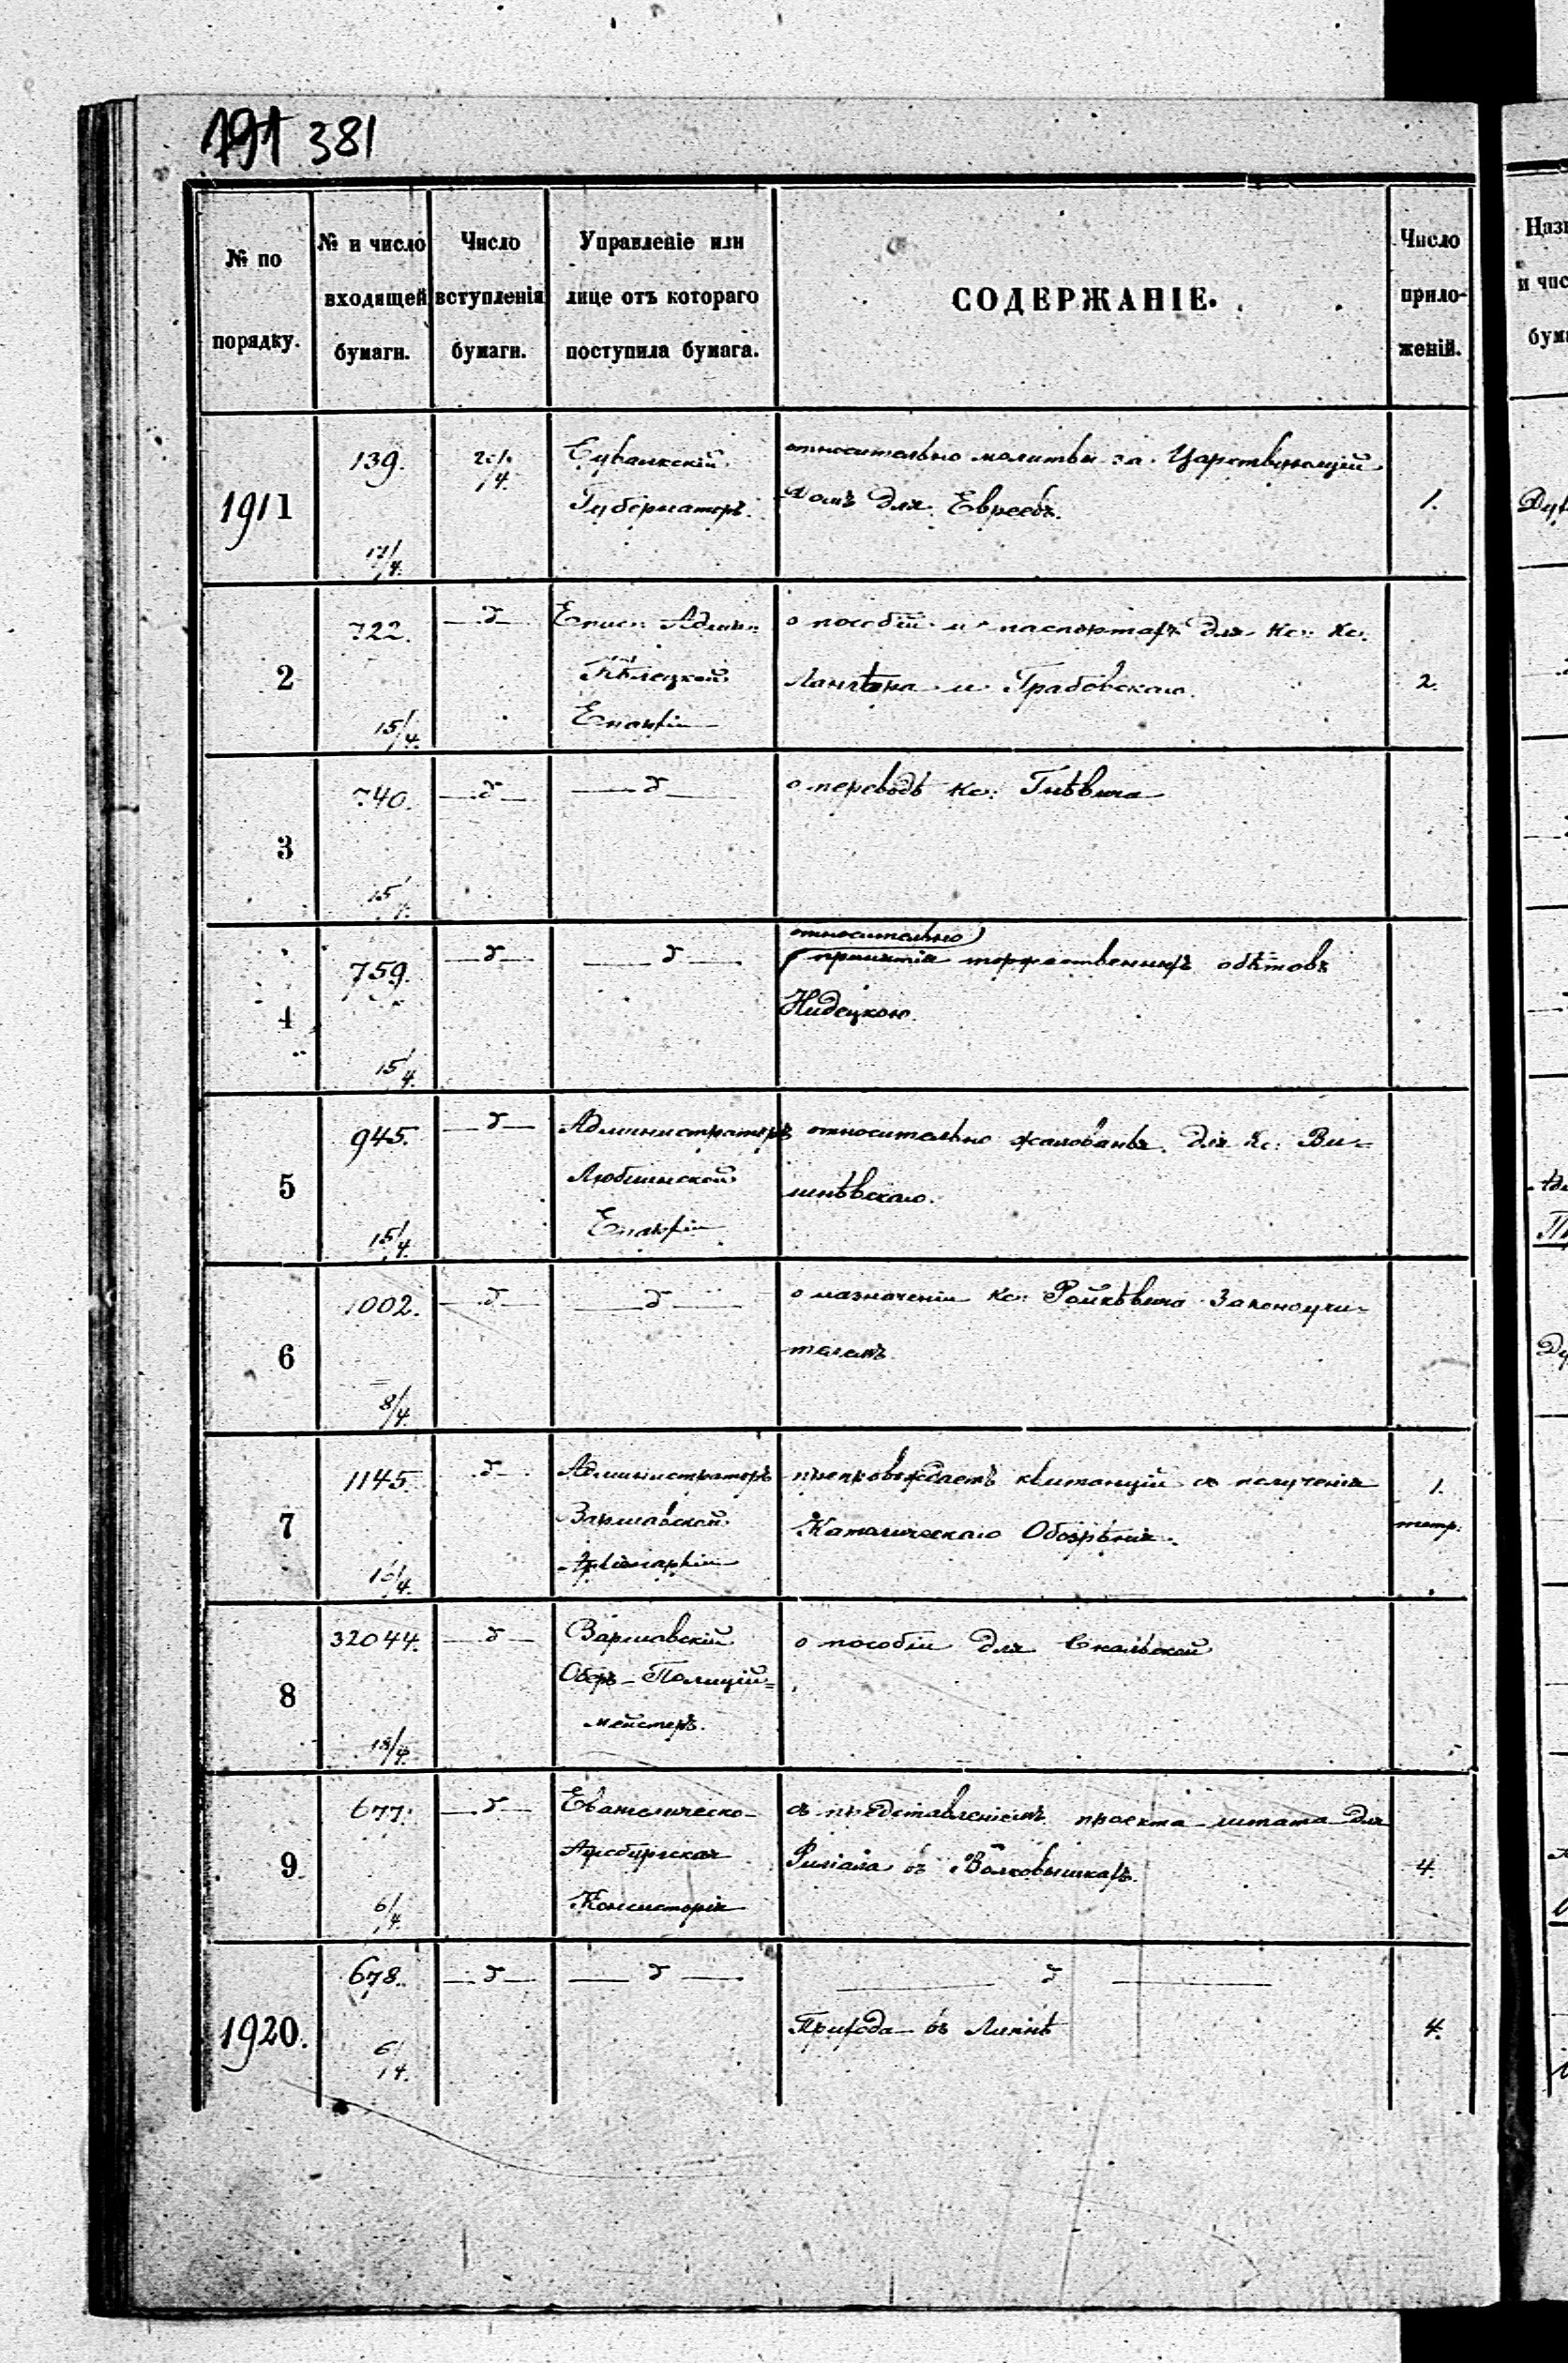 191 381
№ по порядку.
№ и число входящей бумаги.
Число вступленія бумаги.
Управленіе или лице отъ котораго поступила бумага.
СОДЕРЖАНІЕ.
Число прило- женій.
1911
139.
17/4.
20/4.
Сувалкскій
Губернаторъ.
относительно молитвы за Царствующій
Домъ для Евреевъ.
1.
2
722.
15/4.
— д —
Епис: Админ:
Кѣлецкой
Епархіи
о пособіи и паспортахъ для Кс: Кс:
и Грабовскаго.
2.
3
740.
15/4.
— д —
— д —
о переводѣ Кс: Гнѣвша
4
759.
15/4.
— д —
— д —
относительно
принятія торжественныхъ обѣтовъ
Нидецкою.
5
945.
15/4.
— д —
Администраторъ
Люблинской
Епархіи
относительно жалованья для Кс: Ви=
шнѣвскаго.
6
1002.
8/4.
— д —
— д —
о назначеніи Кс: Ройкѣвича Законоучи=
телемъ.
7
1145.
16/4.
— д —
Администраторъ
Варшавской
Архіепархіи
препровождаетъ квитанціи съ полученія
Католическаго Обозрѣнія.
1.
тетр.
8
32044.
18/4.
— д —
Варшавскій
Оберъ-Полицій=
мейстеръ.
о пособіи для Скальской
9
677.
6/4.
— д —
Евангелическо-
Аусбургская
Консисторія
съ представленіемъ проекта штата для
Филіала въ Волковышкахъ.
4.
1920.
678.
6/4.
— д —
— д —
— д —
Прихода въ Липнѣ
4.